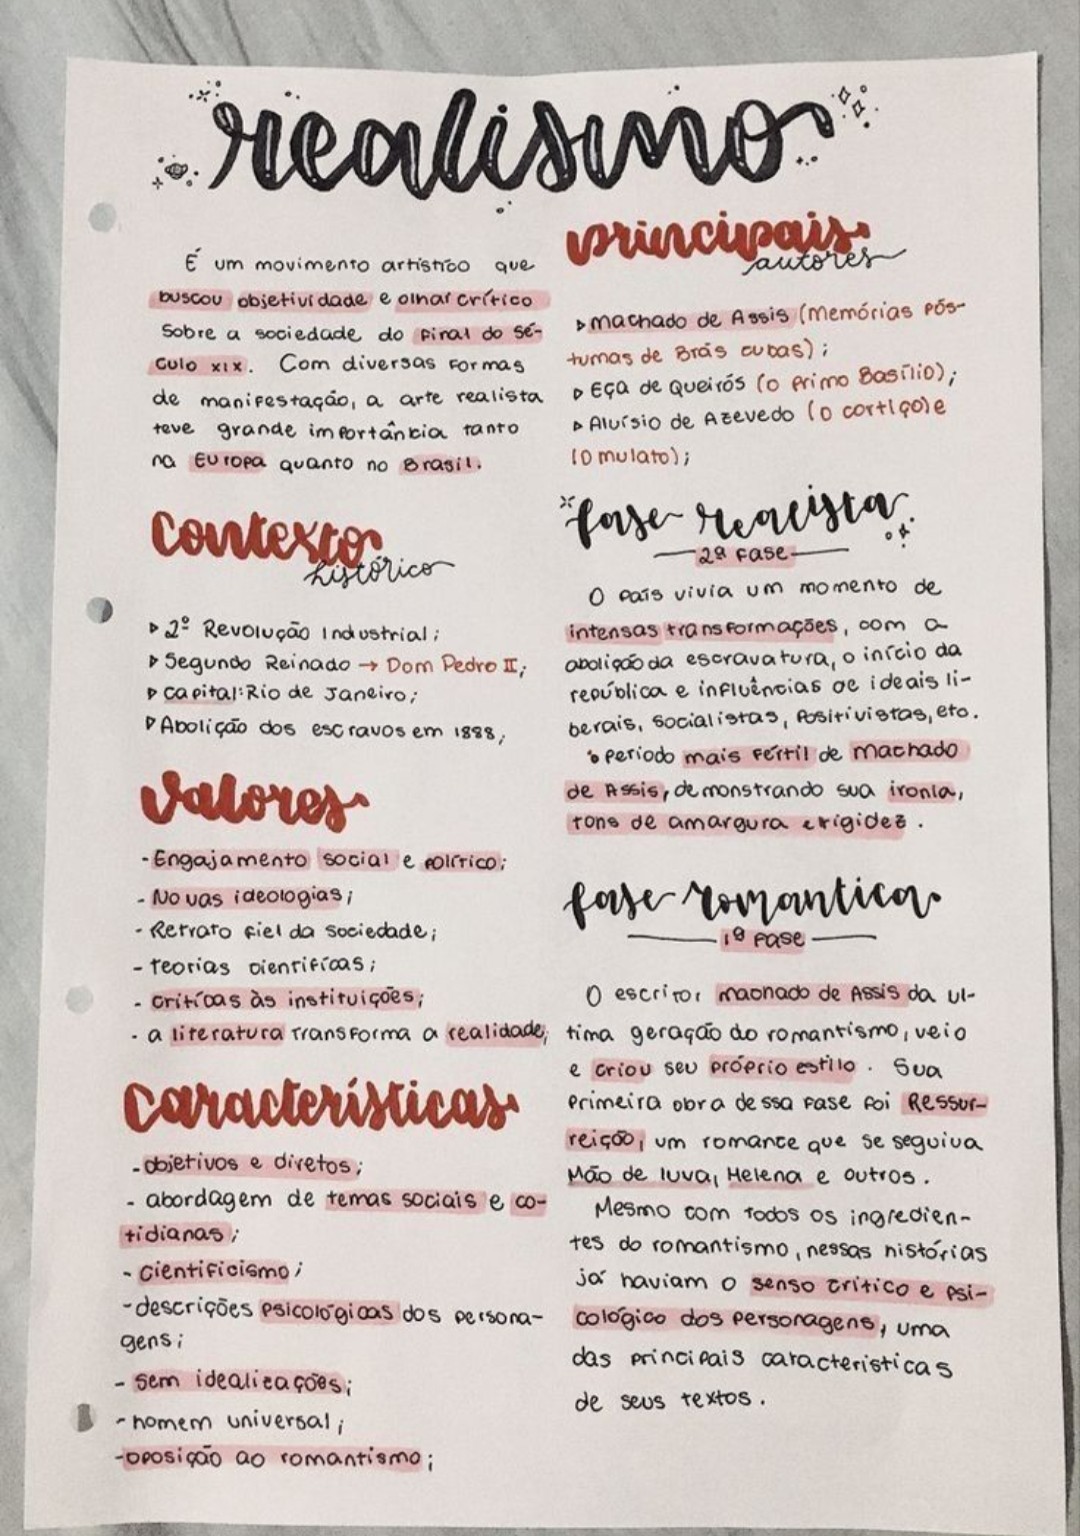 realismo
É um movimento artístico que
buscou objetividade e olhar crítico
sobre a sociedade do final do sé-
culo XIX. Com diversas formas
de manifestação, a arte realista
teve grande importância tanto
na Europa quanto no Brasil.
contexto
histórico
▷ 2º Revolução Industrial;
▷ Segundo Reinado → Dom Pedro II;
▷ capital: Rio de Janeiro;
▷ Abolição dos escravos em 1888;
valores
- Engajamento social e político;
- Novas ideologias;
- Retrato fiel da sociedade;
- teorias científicas;
- críticas às instituições;
- a literatura transforma a realidade;
características
- objetivos e diretos;
- abordagem de temas sociais e co-
tidianas;
- cientificismo;
- descrições psicológicas dos persona-
gens;
- sem idealizações;
- homem universal;
- oposição ao romantismo;
principais
autores
▷ machado de Assis (Memórias pós-
tumas de Brás cubas);
▷ Eça de Queirós (o primo Basílio);
▷ Aluísio de Azevedo (o cortiço) e
(o mulato);
fase realista
2ª fase
O país vivia um momento de
intensas transformações, com a
abolição da escravatura, o início da
república e influências de ideais li-
berais, socialistas, positivistas, etc.
período mais fértil de machado
de Assis, demonstrando sua ironia,
tons de amargura e rigidez.
fase romantica
1ª fase
O escritor machado de Assis da úl-
tima geração do romantismo, veio
e criou seu próprio estilo. Sua
primeira obra dessa fase foi Ressur-
reição, um romance que se seguiva
Mão de luva, Helena e outros.
Mesmo com todos os ingredien-
tes do romantismo, nessas histórias
já haviam o senso crítico e psi-
cológico dos personagens, uma
das principais características
de seus textos.